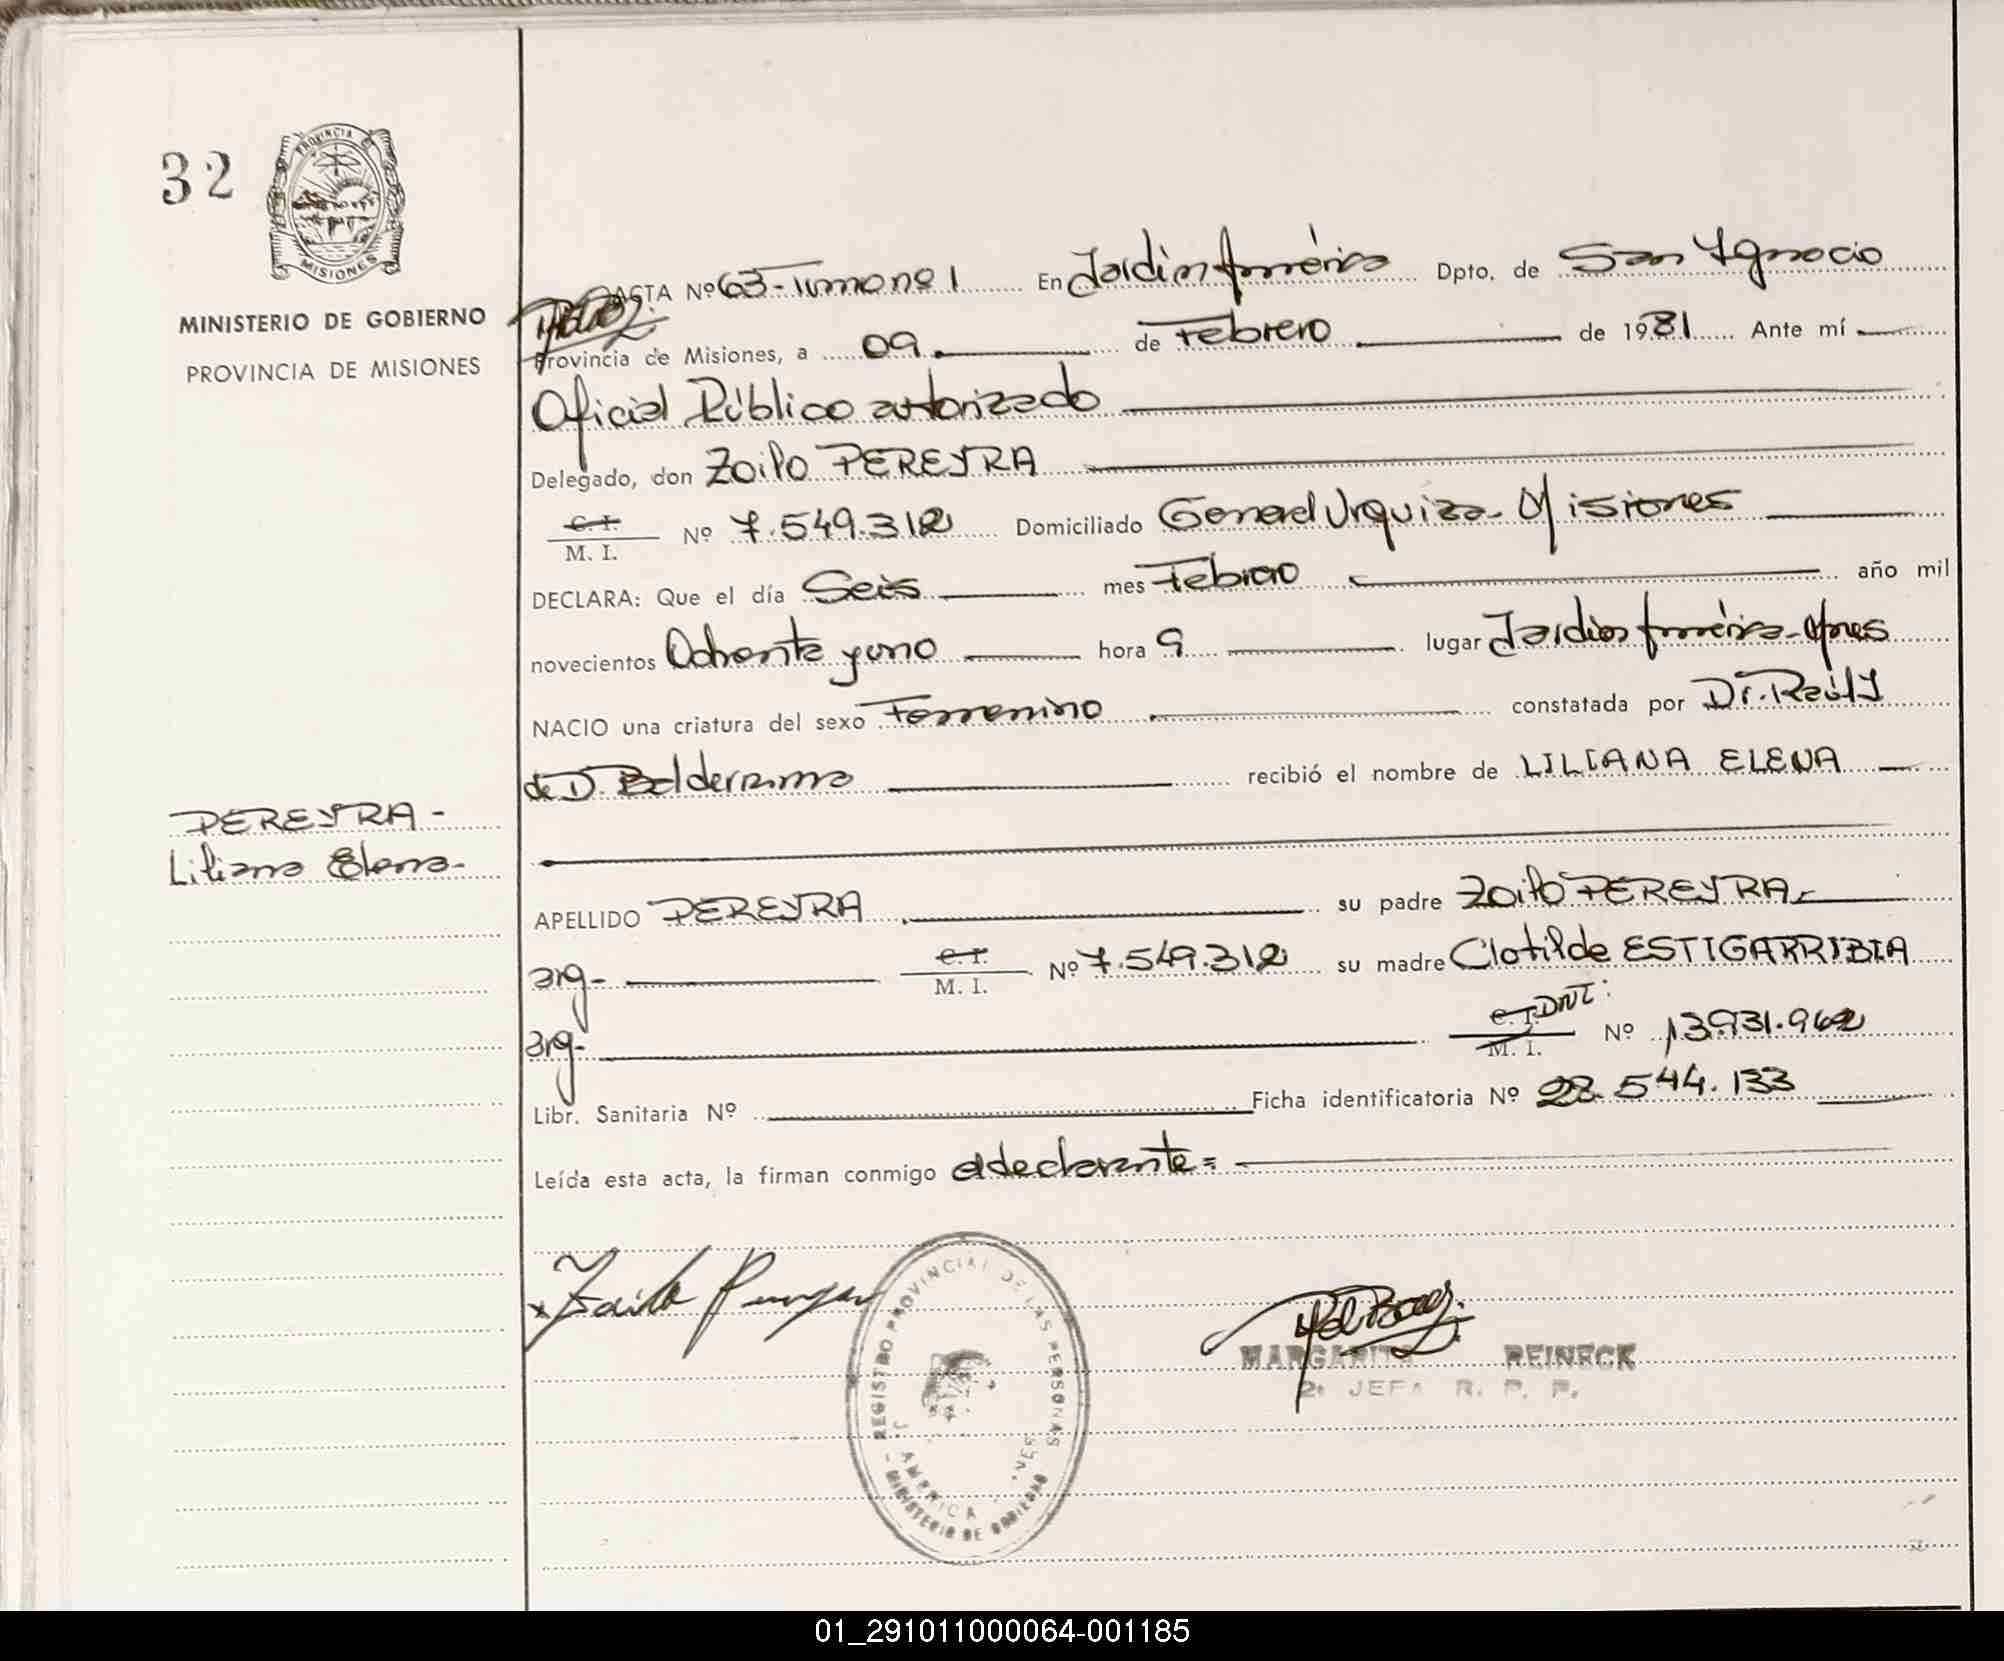 32
PROVINCIA DE
MISIONES
MINISTERIO DE GOBIERNO
PROVINCIA DE MISIONES
ACTA Nº 63-Tomo nº 1 En Jardín América Dpto. de San Ignacio
Provincia de Misiones, a 09 de Febrero de 1981 Ante mí
Oficial Público autorizado
Delegado, don Zoilo PEREYRA
C. I.
M. I. Nº 7.549.312 Domiciliado General Urquiza - Misiones
DECLARA: Que el día Seis mes Febrero año mil
novecientos Ochenta y uno hora 9 lugar Jardín América - Mnes
NACIO una criatura del sexo Femenino constatada por Dr. Raúl J
de D. Balderrama recibió el nombre de LILIANA ELENA
PEREYRA -
Liliana Elena -
APELLIDO PEREYRA su padre Zoilo PEREYRA
arg- C. I.
M. I. Nº 7.549.312 su madre Clotilde ESTIGARRIBIA
arg- C. I. DNI:
M. I. Nº 13.931.962
Libr. Sanitaria Nº Ficha identificatoria Nº 28.544.133
Leída esta acta, la firman conmigo el declarante =
x Zoilo Pereyra
REGISTRO PROVINCIAL DE LAS PERSONAS
AMERICA
MINISTERIO DE GOBIERNO
MARGARITA REINECK
2ª JEFA R. P. P.
01_291011000064-001185